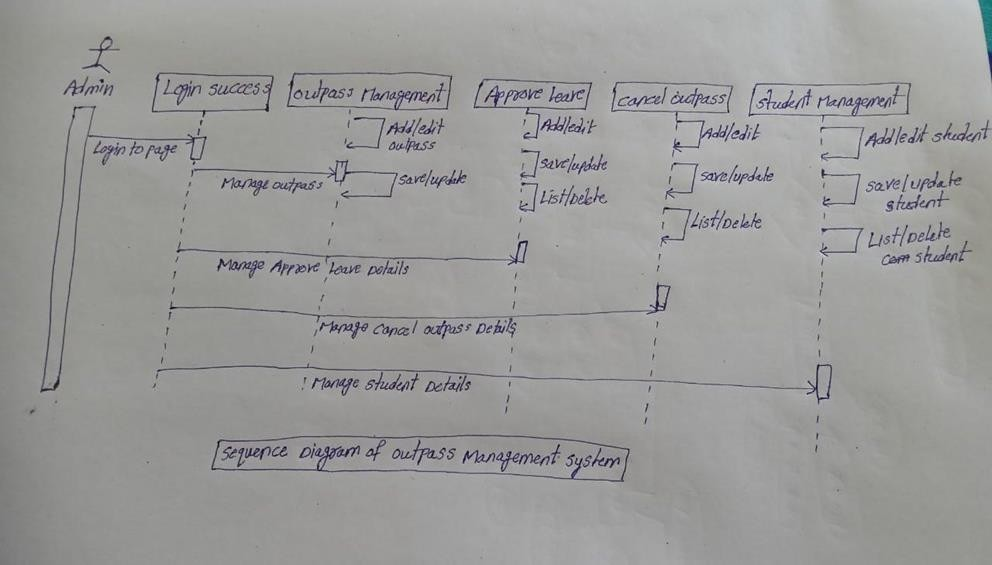 Admin
Login success
Outpass Management
Approve Leave
Cancel outpass
Student Management
Login to page
Add/edit
outpass
Add/edit
Add/edit
Add/edit student
Manage outpass
Save/update
Save/update
Save/update
Save/update
student
List/Delete
List/Delete
List/Delete
student
Manage Approve Leave Details
Manage Cancel outpass Details
Manage Student Details
Sequence Diagram of Outpass Management System